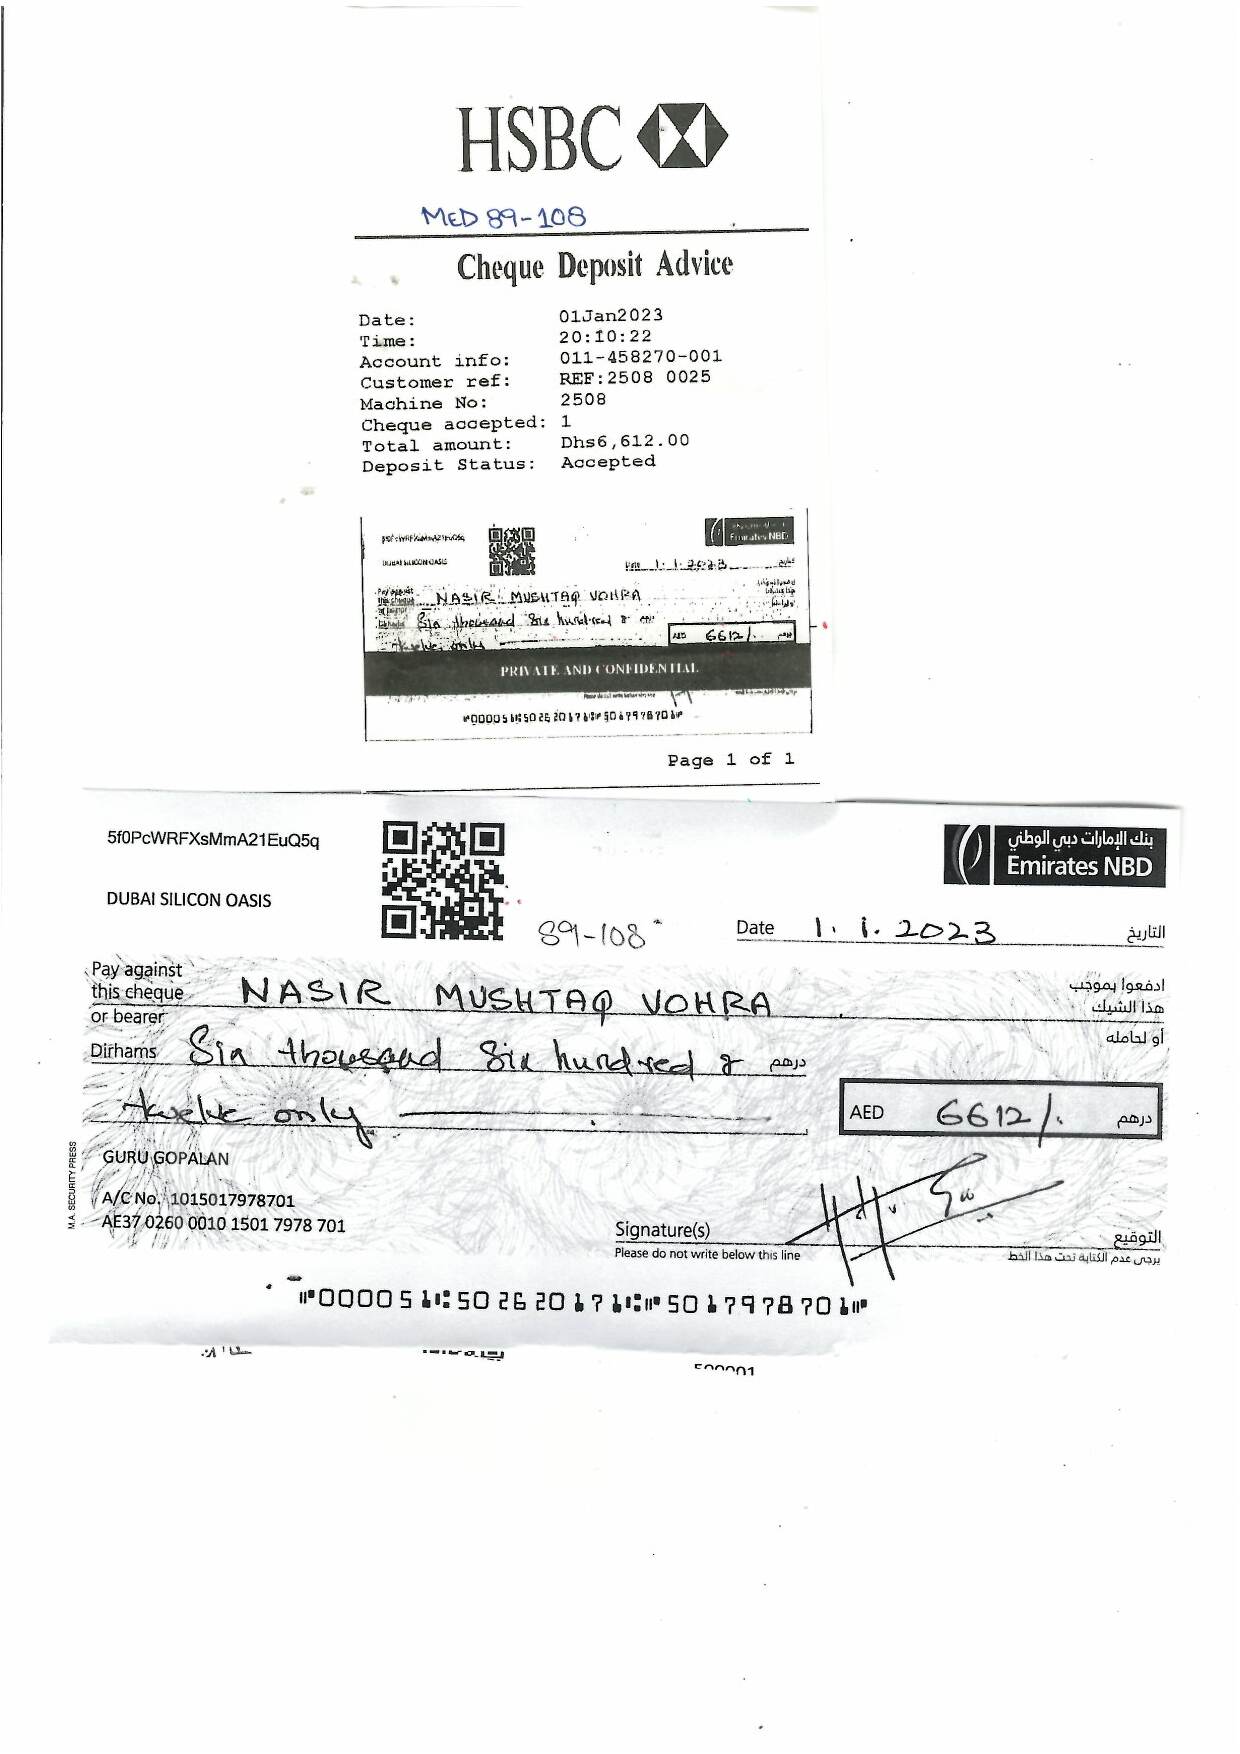 HSBC
MED 89-108
Cheque Deposit Advice
Date: 01Jan2023
Time: 20:10:22
Account info: 011-458270-001
Customer ref: REF:2508 0025
Machine No: 2508
Cheque accepted: 1
Total amount: Dhs6,612.00
Deposit Status: Accepted
Emirates NBD
DUBAI SILICON OASIS
Date 1.1.2023
Pay against
this cheque NASIR MUSHTAQ VOHRA
Six thousand Six hundred &
twelve only AED 6612/.
PRIVATE AND CONFIDENTIAL
Please do not write below this line
Page 1 of 1
5f0PcWRFXsMmA21EuQ5q
بنك الإمارات دبي الوطني
Emirates NBD
DUBAI SILICON OASIS
89-108
Date 1.1.2023 التاريخ
Pay against
this cheque NASIR MUSHTAQ VOHRA
or bearer
ادفعوا بموجب
هذا الشيك
أو لحامله
Dirhams Six thousand Six hundred & درهم
twelve only
AED 6612/. درهم
GURU GOPALAN
A/C No. 1015017978701
AE37 0260 0010 1501 7978 701
M.A. SECURITY PRESS
Signature(s) التوقيع
Please do not write below this line يرجى عدم الكتابة تحت هذا الخط
⑈000051⑆502620171⑆⑈5017978701⑈